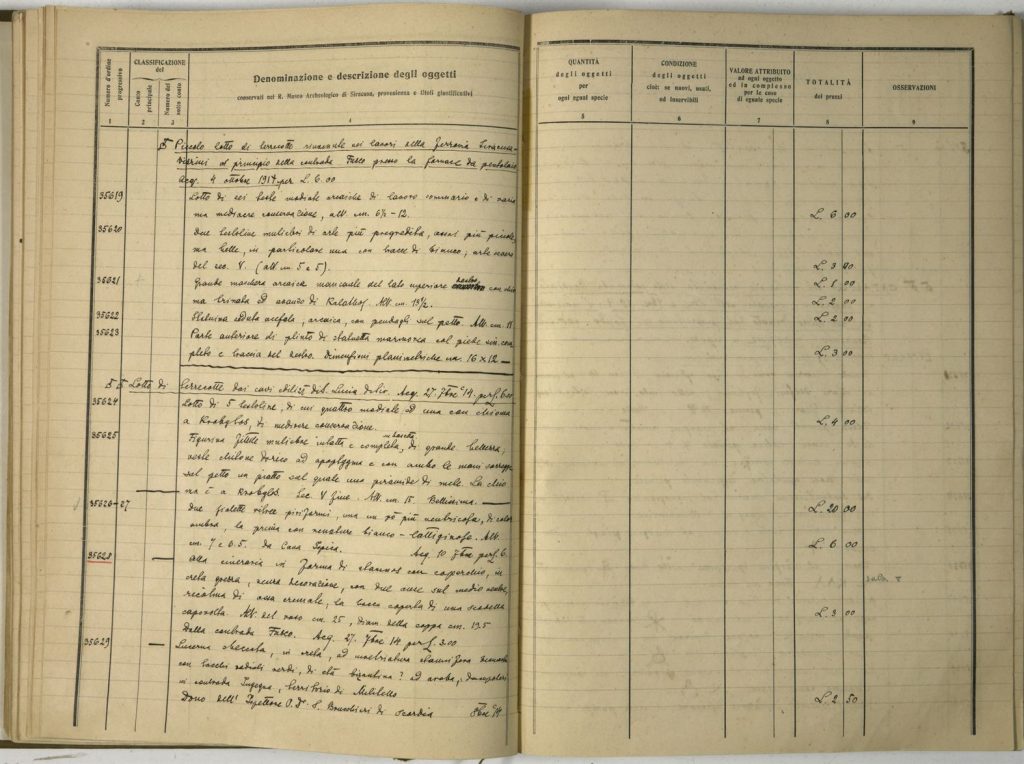 Numero d'ordine progressivo
CLASSIFICAZIONE del
Conto principale
Numero del sotto conto
Denominazione e descrizione degli oggetti
conservati nel R. Museo Archeologico di Siracusa, provenienza e titoli giustificativi
QUANTITÀ degli oggetti per ogni egual specie
CONDIZIONE degli oggetti cioè: se nuovi, usati, od inservibili
VALORE ATTRIBUITO ad ogni oggetto ed in complesso per le cose di eguale specie
TOTALITÀ dei prezzi
OSSERVAZIONI
1 2 3 4 5 6 7 8 9
Piccolo lotto di terrecotte rinvenute nei lavori della Ferrovia Siracusa-
Vizzini al principio della contrada Fusco presso la fornace
Acq. 4 ottobre 1914 per L. 6.00
35619 Lotto di sei teste muliebri arcaiche di lavoro sommario e di varia
ma mediocre conservazione, alt. cm. 6½ - 12. L. 6 00
35620 Due testoline muliebri di arte più progredita, assai più piccole,
ma belle, in particolare una con tracce di bianco; arte
del sec. V. (alt. cm 5 e 5). L. 3 00
35621 Grande maschera arcaica mancante del lato superiore con chio L. 1 00
ma trinata ed avanzo di Kalathos. Alt. cm. 13½. L. 2 00
35622 Statuina seduta acefala, arcaica, con pendagli sul petto. Alt. cm. L. 2 00
35623 Parte anteriore di plinto di statuetta marmorea col piede sin. com
pleto e traccia del destro. Dimensioni planimetriche cm. 16 x 12 L. 3 00
Lotto di terrecotte dai cavi edilizi di S. Lucia Acq. 27. 7bre 14. per L. 6.00
35624 Lotto di 5 testoline, di cui quattro muliebri ed una con chioma
a Krobylos, di mediocre conservazione. L. 4 00
35625 Figurina fittile muliebre intatta e completa, di grande bellezza;
veste chitone dorico ad apoptygma e con ambo le mani sorregge
sul petto un piatto sul quale una piramide di mele. La chio
ma è a Krobylos. Sec. V fine. Alt. cm. 15. Bellissima. L. 20 00
35626-27 Due fialette vitree piriformi, una un pò più ventricosa, di color
ambra, la prima con venature bianco-lattiginose. Alt.
cm. 7 e 6.5. Da Acq. 10 7bre per L. 6. L. 6 00
35628 Olla cineraria in forma di stamnos con coperchio, in
creta grezza, senza decorazione, con due anse sul medio ventre,
ricolma di ossa cremate, la bocca coperta di una scodella
capovolta. Alt. del vaso cm. 25, diam. della coppa cm. 19.5
Dalla contrada Fusco. Acq. 27. 7bre 14 per L. 3.00 L. 3 00
35629 Lucerna in creta, ad
con tocchi radiali verdi, di età bizantina? od araba;
in contrada territorio di Militello
Dono dell'Ispettore di Scordia 8bre 14 L. 2 50